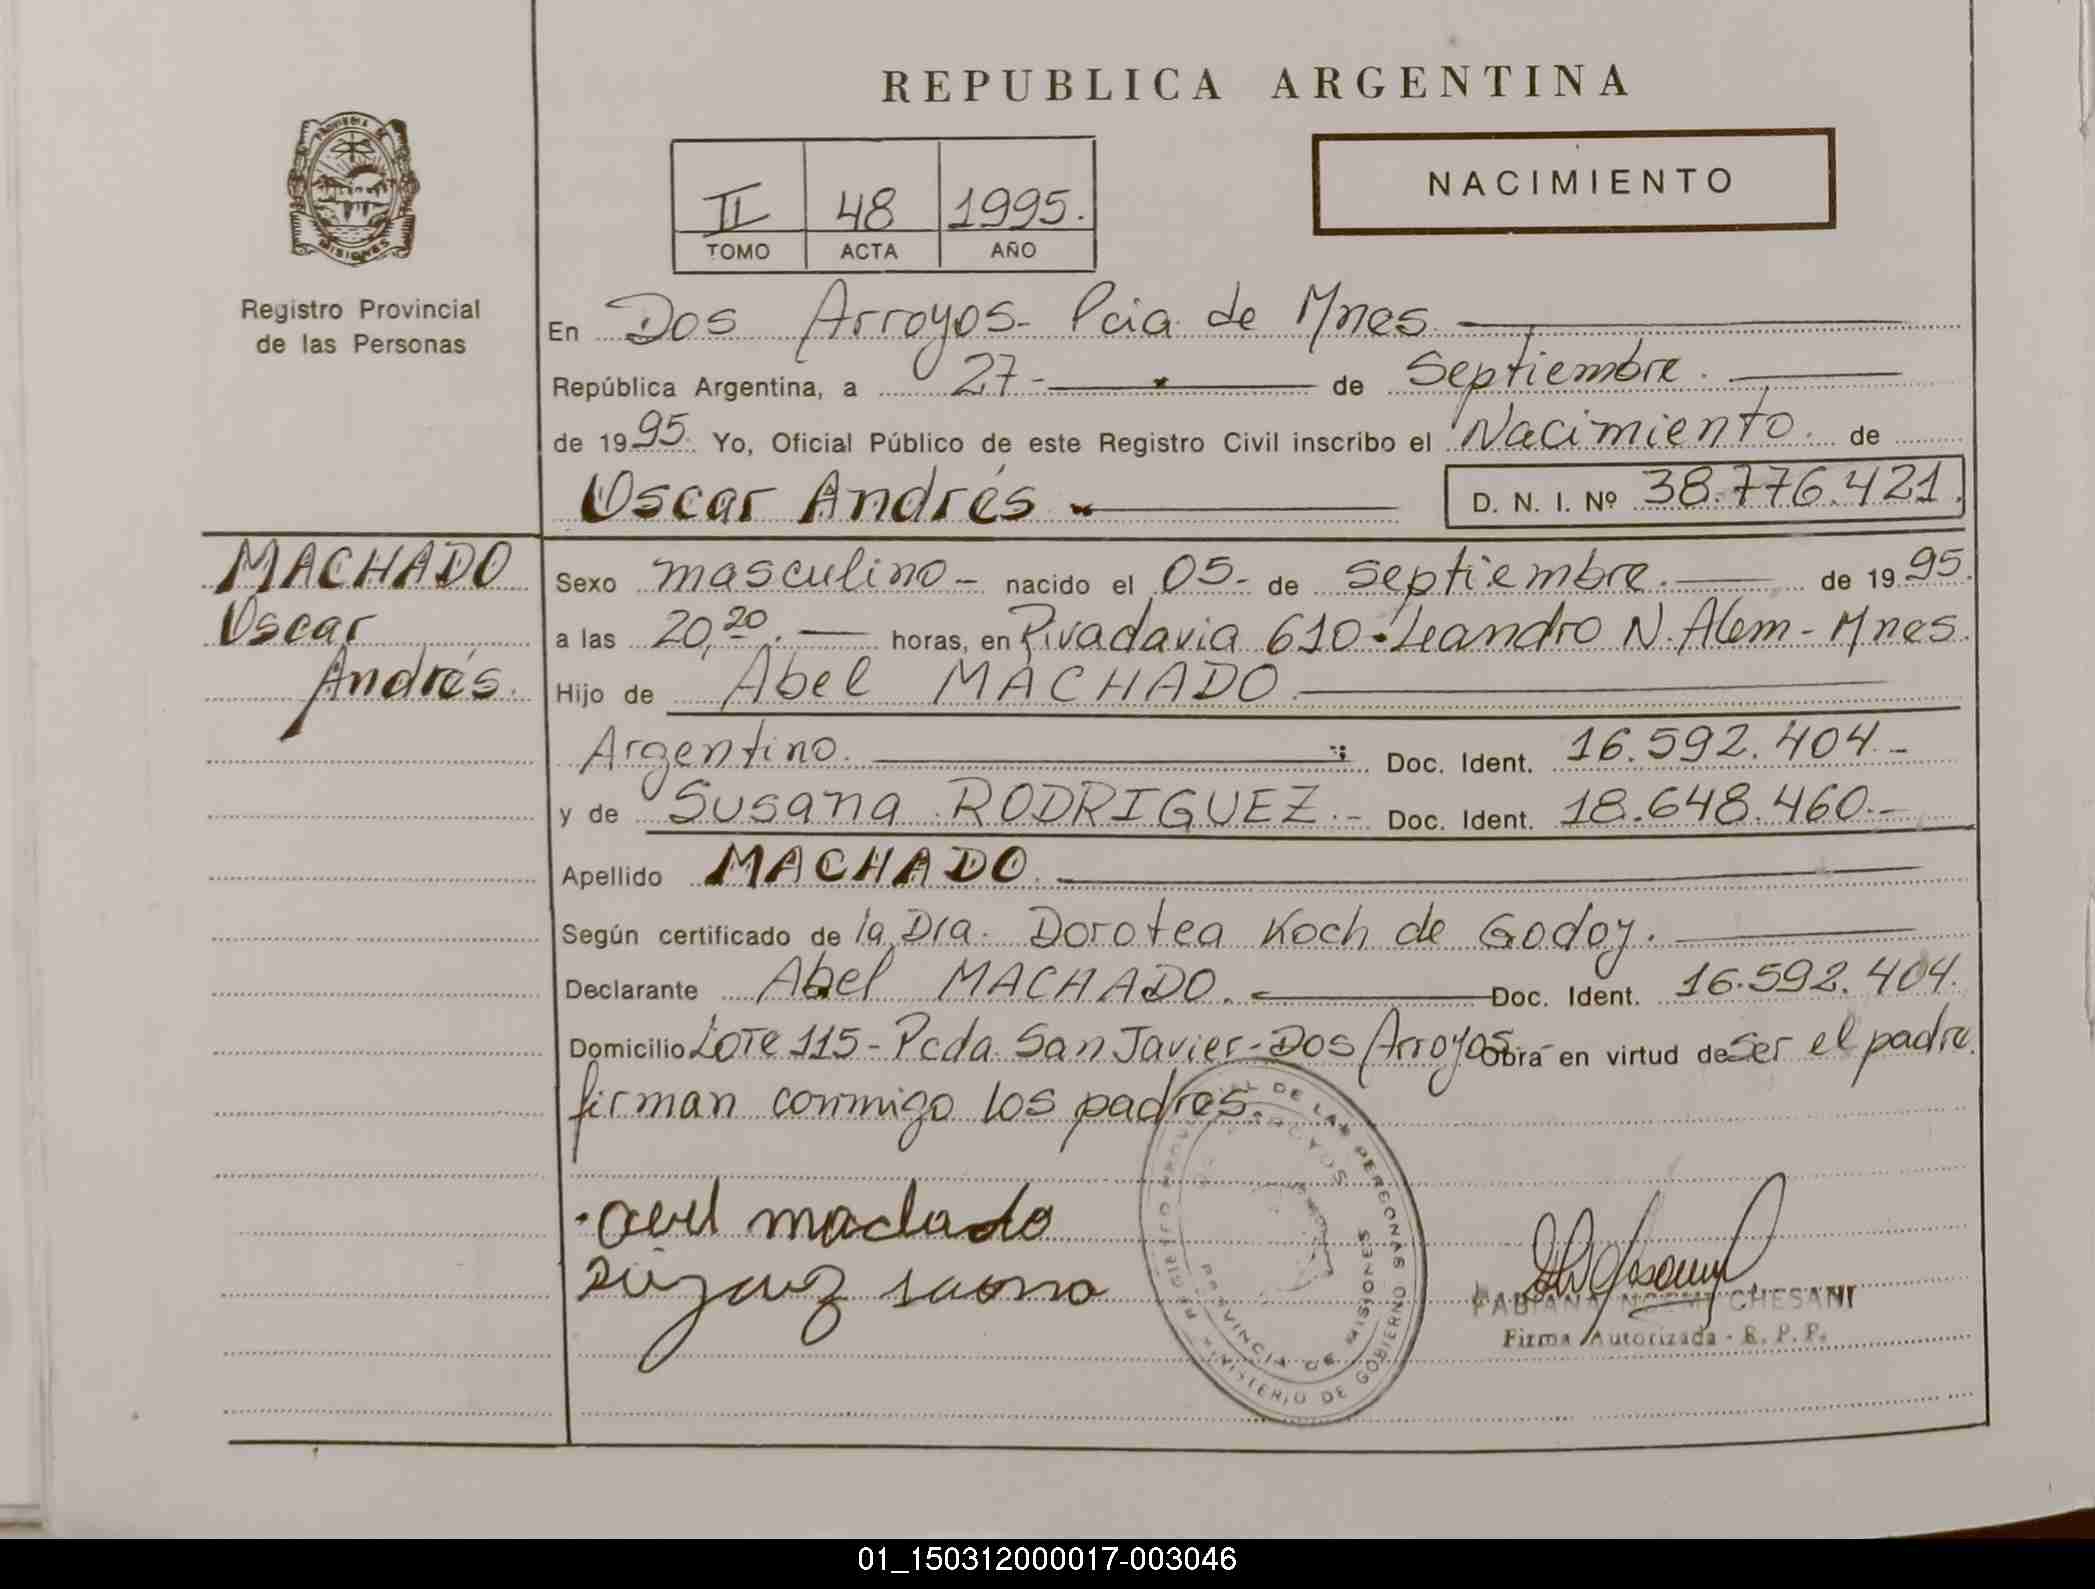 REPUBLICA ARGENTINA
PROVINCIA DE
MISIONES
Registro Provincial
de las Personas
II 48 1995.
TOMO ACTA AÑO
NACIMIENTO
En Dos Arroyos - Pcia de Mnes
República Argentina, a 27- de Septiembre.
de 1995. Yo, Oficial Público de este Registro Civil inscribo el Nacimiento. de
Oscar Andrés D. N. I. Nº 38.776.421.
MACHADO
Oscar
Andrés.
Sexo masculino - nacido el 05- de Septiembre. de 1995.
a las 20,20. horas, en Rivadavia 610 - Leandro N. Alem - Mnes.
Hijo de Abel MACHADO
Argentino. Doc. Ident. 16.592.404.-
y de Susana RODRIGUEZ.- Doc. Ident. 18.648.460.-
Apellido MACHADO
Según certificado de la Dra. Dorotea Koch de Godoy.
Declarante Abel MACHADO. Doc. Ident. 16.592.404.
Domicilio Lote 115 - Pcda San Javier - Dos Arroyos Obra en virtud de Ser el padre.
firman conmigo los padres.
REGISTRO PROVINCIAL DE LAS PERSONAS
MINISTERIO DE GOBIERNO
DOS ARROYOS
PROVINCIA DE MISIONES
machado
FABIANA NOEMI CHESANI
Firma Autorizada - R. P. P.
01_150312000017-003046